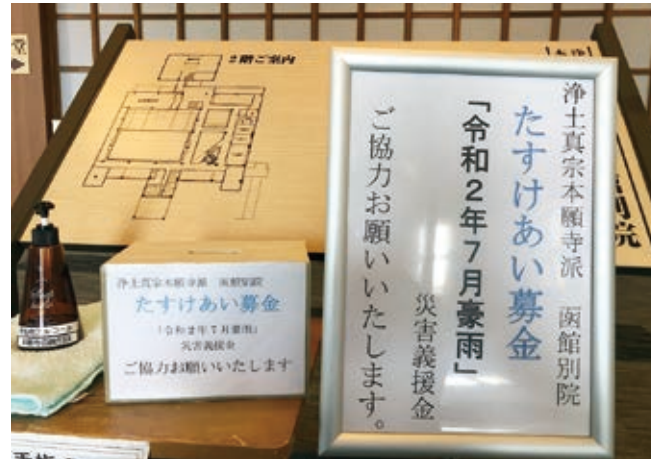 浄土真宗本願寺派 函館別院
たすけあい募金
「令和2年7月豪雨」
災害義援金
ご協力お願いいたします。
浄土真宗本願寺派 函館別院
たすけあい募金
「令和2年7月豪雨」
災害義援金
ご協力お願いいたします
階ご案内
別院
堂